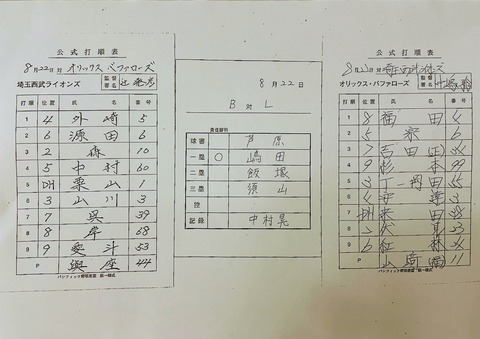 公式打順表
8月22日 対 オリックス・バファローズ
埼玉西武ライオンズ 監督署名 辻 発彦
打順 氏 名 番号
1 4 外崎 5
2 6 源田 6
3 2 森 10
4 5 中村 60
5 DH 栗山 1
6 3 山川 3
7 7 呉 39
8 8 岸 68
9 9 愛斗 53
P 與座 44
パシフィック野球連盟 統一様式
8月22日
B 対 L
責任審判
球審 芦原
一塁 ○ 嶋田
二塁 飯塚
三塁 須山
控
記録 中村晃
公式打順表
オリックス・バファローズ 監督署名
打順 氏 名 番号
1 8 福田
2 5 宗 6
3 7 吉田正
4 9 杉本 99
5 3
6 4 安達 3
7 DH
8 2 伏見
9 6 紅林
P 山﨑福 11
パシフィック野球連盟 統一様式